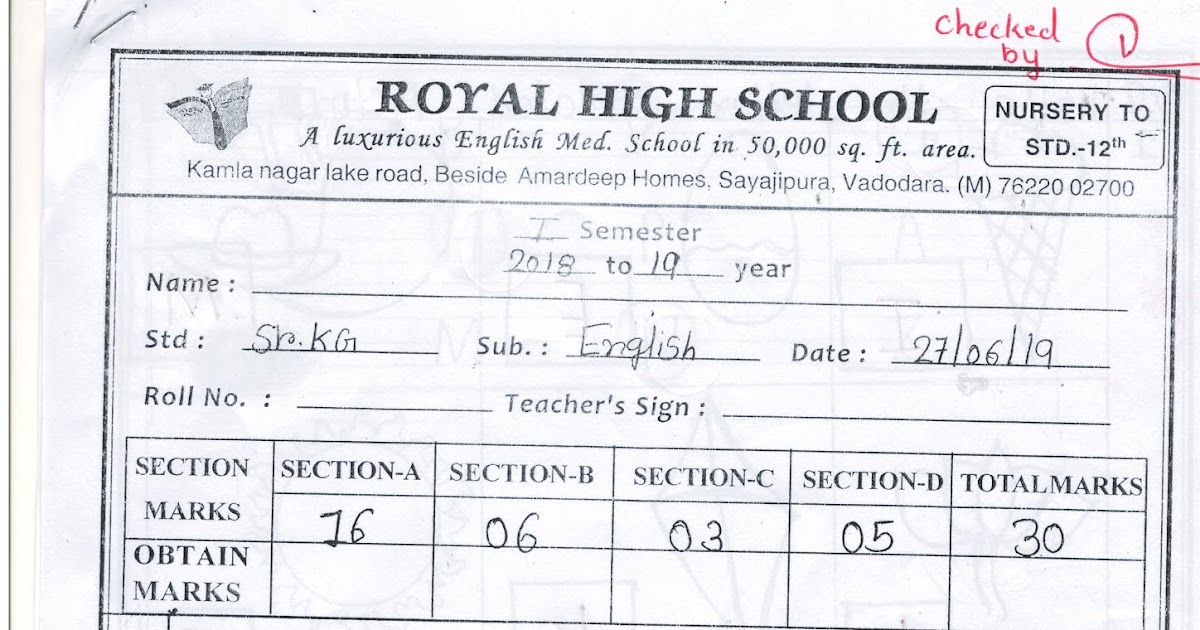 Checked
by
ROYAL HIGH SCHOOL
A luxurious English Med. School in 50,000 sq. ft. area.
NURSERY TO
STD.-12th
Kamla nagar lake road, Beside Amardeep Homes, Sayajipura, Vadodara. (M) 76220 02700
I Semester
2018 to 19 year
Name :
Std : Sr.KG Sub. : English Date : 27/06/19
Roll No. : Teacher's Sign :
SECTION SECTION-A SECTION-B SECTION-C SECTION-D TOTALMARKS
MARKS 16 06 03 05 30
OBTAIN
MARKS